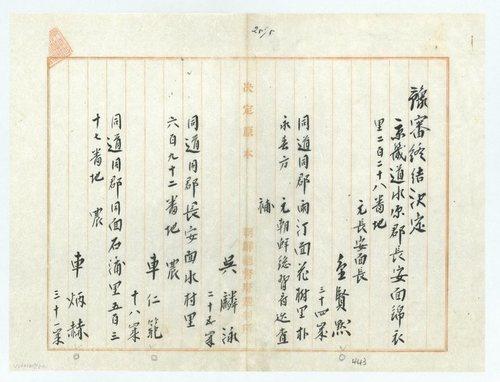 25/5
豫審終結決定
京畿道水原郡長安面錦衣
里二百二十八番地
元長安面長
金賢黙
三十四歲
同道同郡雨汀面花樹里朴
永
方 元朝鮮總督府巡査
補
吳麟泳
二十
歲
同道同郡長安面水村里
六百九十二番地 農
車仁範
十八歲
同道同郡同面石浦里五百三
十七番地 農
車炳赫
三十一歲
決定原本
朝鮮總督府裁判所
443